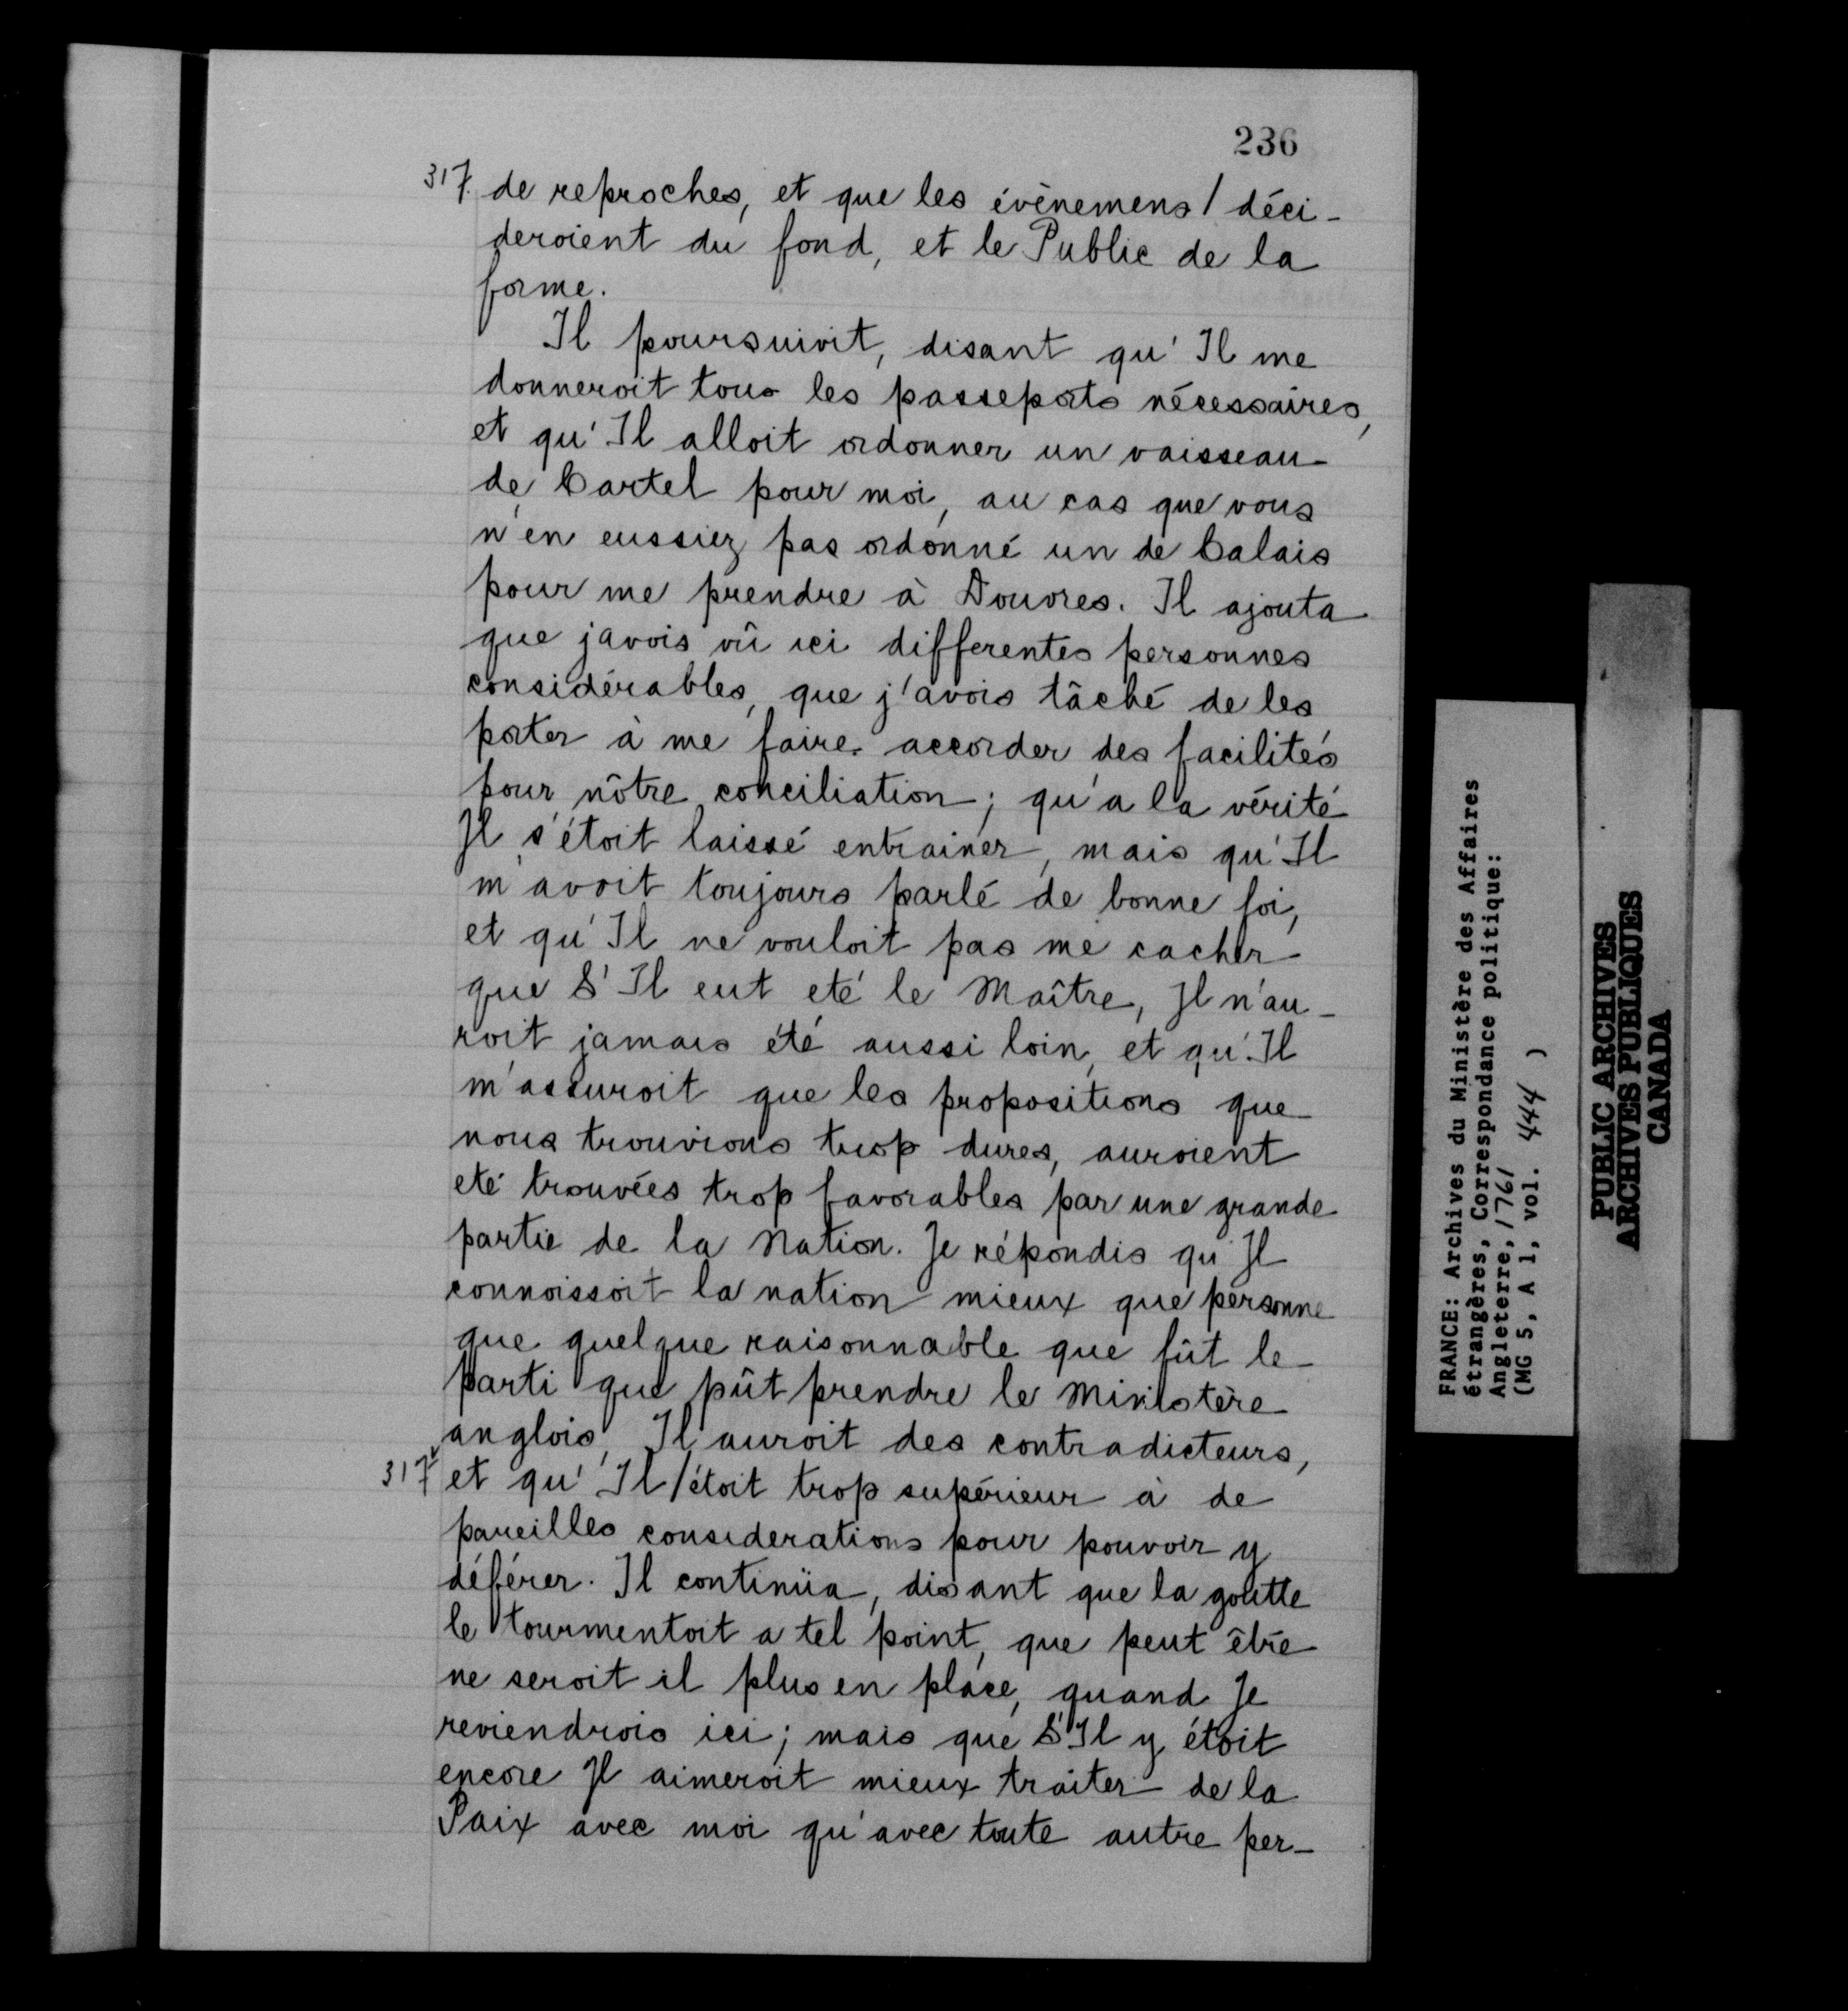 236
317. de reproches, et que les évènemens / déci-
deroient du fond, et le Public de la
forme.
Il poursuivit, disant qu'Il me
donneroit tous les passeports nécessaires,
et qu'Il alloit ordonner un vaisseau
de Cartel pour moi, au cas que vous
n'en eussiez pas ordonné un de Calais
pour me prendre à Douvres. Il ajouta
que javois vû ici differentes personnes
considérables, que j'avois tâché de les
porter à me faire accorder des facilités
pour nôtre conciliation ; qu'a la vérité
Il s'étoit laissé entrainer, mais qu'Il
m'avoit toujours parlé de bonne foi,
et qu'Il ne vouloit pas me cacher
que S'Il eut eté le Maître, Il n'au-
roit jamais été aussi loin, et qu'Il
m'assuroit que les propositions que
nous trouvions trop dures, auroient
eté trouvées trop favorables par une grande
partie de la Nation. Je répondis qu'Il
connoissoit la nation mieux que personne
que quelque raisonnable que fût le
parti que pût prendre le Ministère
anglois, Il auroit des contradicteurs,
317v et qu'Il / étoit trop supérieur à de
pareilles considerations pour pouvoir y
déférer. Il continüa, disant que la goutte
le tourmentoit a tel point, que peut être
ne seroit il plus en place, quand Je
reviendrois ici ; mais que S'Il y étoit
encore Il aimeroit mieux traiter de la
Paix avec moi qu'avec toute autre per-
FRANCE: Archives du Ministère des Affaires
étrangères, Correspondance politique:
Angleterre, 1761
(MG 5, A 1, vol. 444 )
PUBLIC ARCHIVES
ARCHIVES PUBLIQUES
CANADA